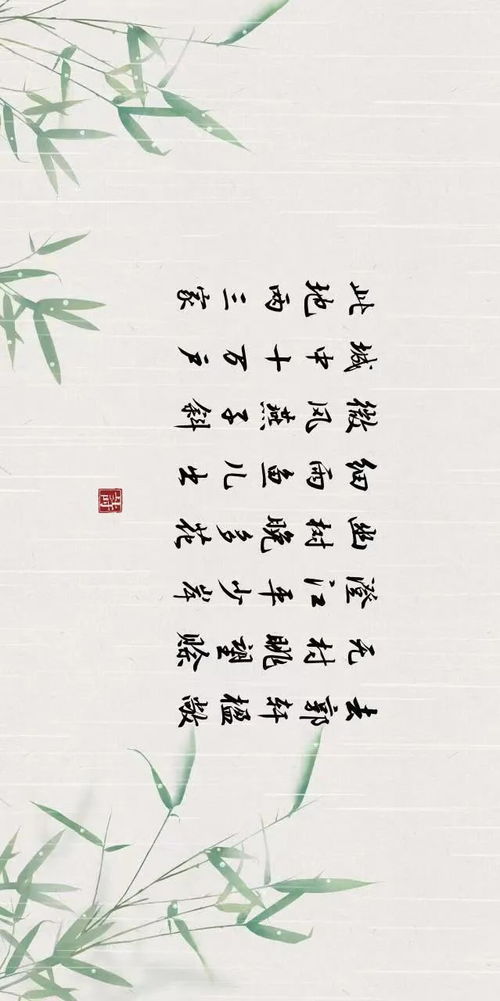 去郭轩楹敞
无村眺望赊
澄江平少岸
幽树晚多花
细雨鱼儿出
微风燕子斜
城中十万户
此地两三家